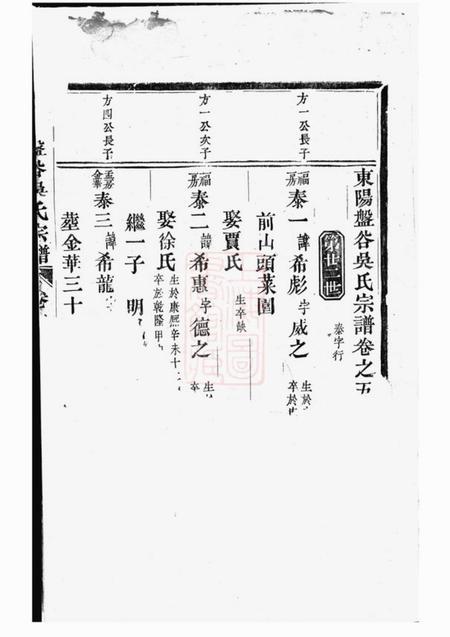 東陽盤谷吳氏宗譜卷之五
第廿三世
泰字行
方一公長子
福嘉泰一諱希彪字威之
生於
卒於
前山頭菜園
娶賈氏
生卒缺
方一公次子
福嘉泰二諱希惠字德之
生
卒
娶徐氏
生於康熙辛未十
卒於乾隆甲
繼一子 明
方四公長子
孟嘉金華泰三諱希龍字
塟金華三十
盤谷吳氏宗譜 卷